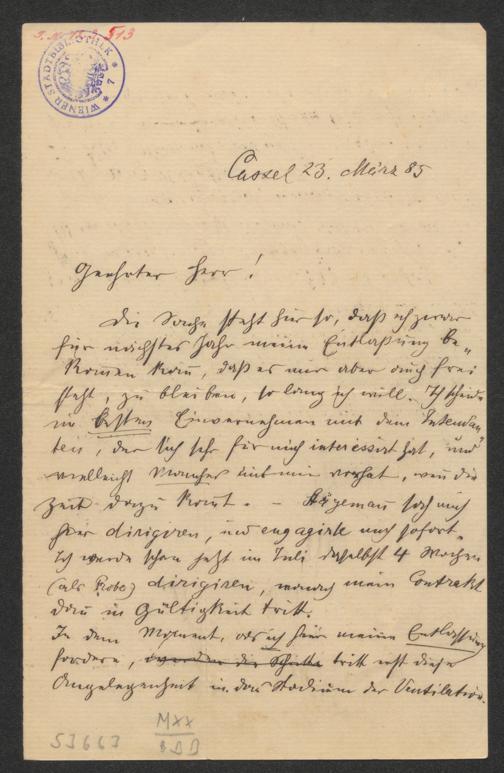 WIENER STADTBIBLIOTHEK * 7 *
Cassel 23. März 85
Geehrter Herr!
Die Sache steht hier so, daß ich zwar
für nächstes Jahr meine Entlaßung be„
komen kan, daß es mir aber auch frei
steht, zu bleiben, so lang ich will. Ich scheide
im besten Einvernehmen mit dem Intendan„
ten, der sich sehr für mich interessirt hat, und
vielleicht Mancher mit mir vorhat, wen die
Zeit dazu komt. – sah mich
hier dirigiren, und engagirte mich sofort.
Ich werde schon jetzt im Juli daselbst 4 Wochen
(als Probe) dirigiren, wonach mein Contrakt
dan in Gültigkeit tritt.
In dem Moment, wo ich hier meine Entlassung
fordere, tritt erst diese
Angelegenheit in das Stadium der Ventilation.
53663